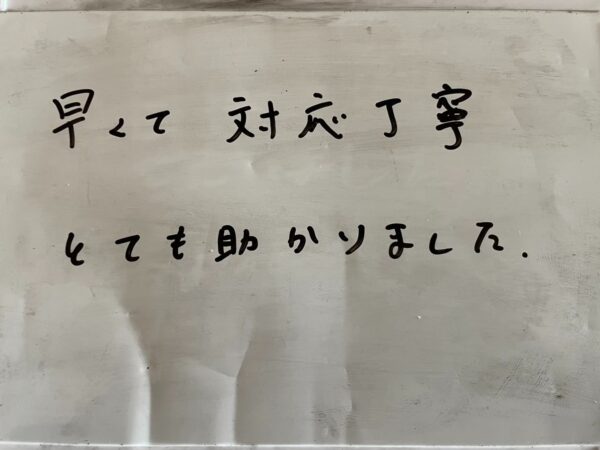 早くて 対応丁寧
とても助かりました.